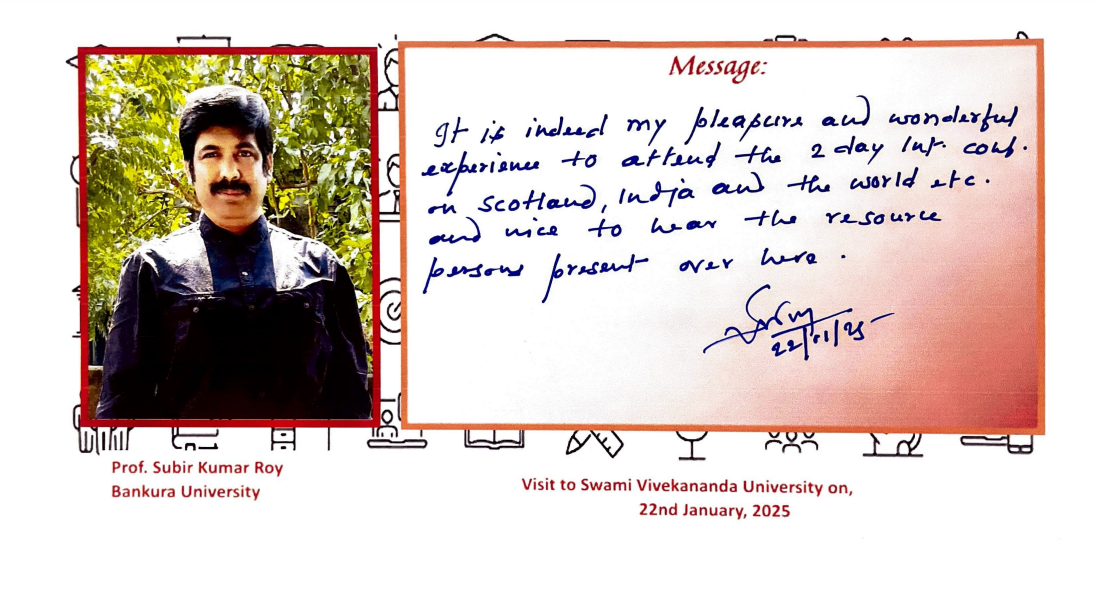 Message:
It is indeed my pleasure and wonderful
experience to attend the 2 day Int. conf.
on Scotland, India and the world etc.
and nice to hear the resource
persons present over here.
22/01/25
Prof. Subir Kumar Roy
Bankura University
Visit to Swami Vivekananda University on,
22nd January, 2025